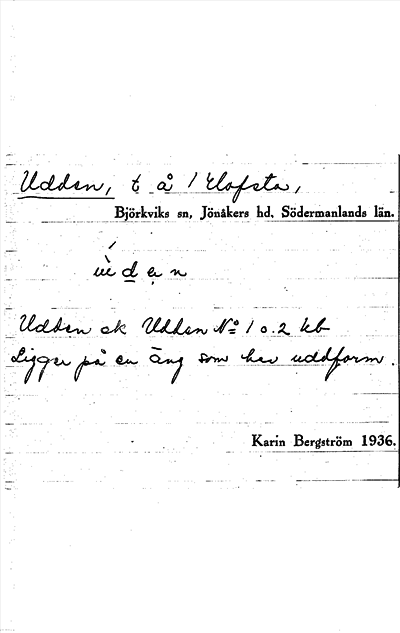 Udden, t å 1 Elofsta,
Björkviks sn, Jönåkers hd. Södermanlands län.
Udden ek Udden No 1 o. 2 kb
Ligger på en äng som har uddform.
Karin Bergström 1936.